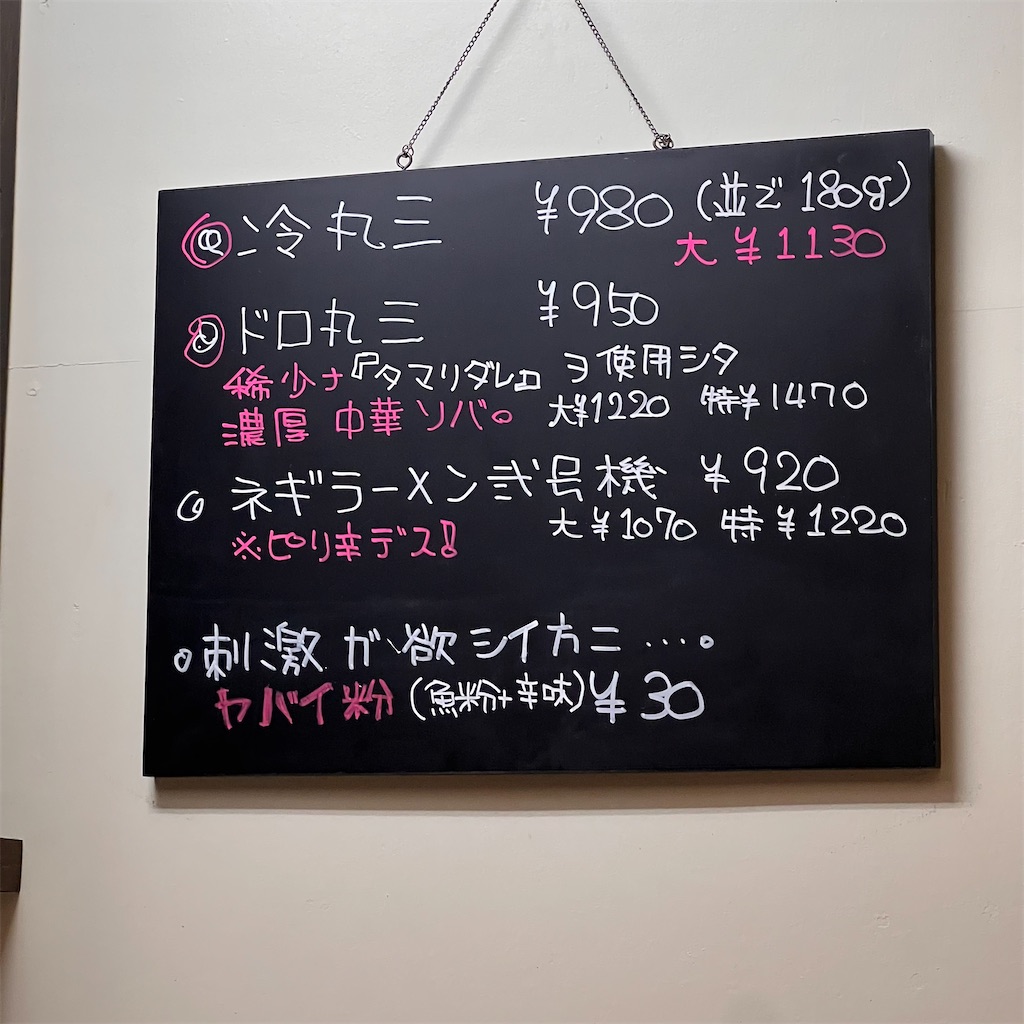 冷丸三 ¥980 (並で180g)
大 ¥1130
ドロ丸三 ¥950
稀少ナ『タマリダレ』ヲ使用シタ
濃厚 中華ソバ。 大¥1220 特¥1470
ネギラーメン弐号機 ¥920
※ピリ辛デス! 大¥1070 特¥1220
刺激ガ欲シイ方ニ…。
ヤバイ粉 (魚粉+辛味) ¥30